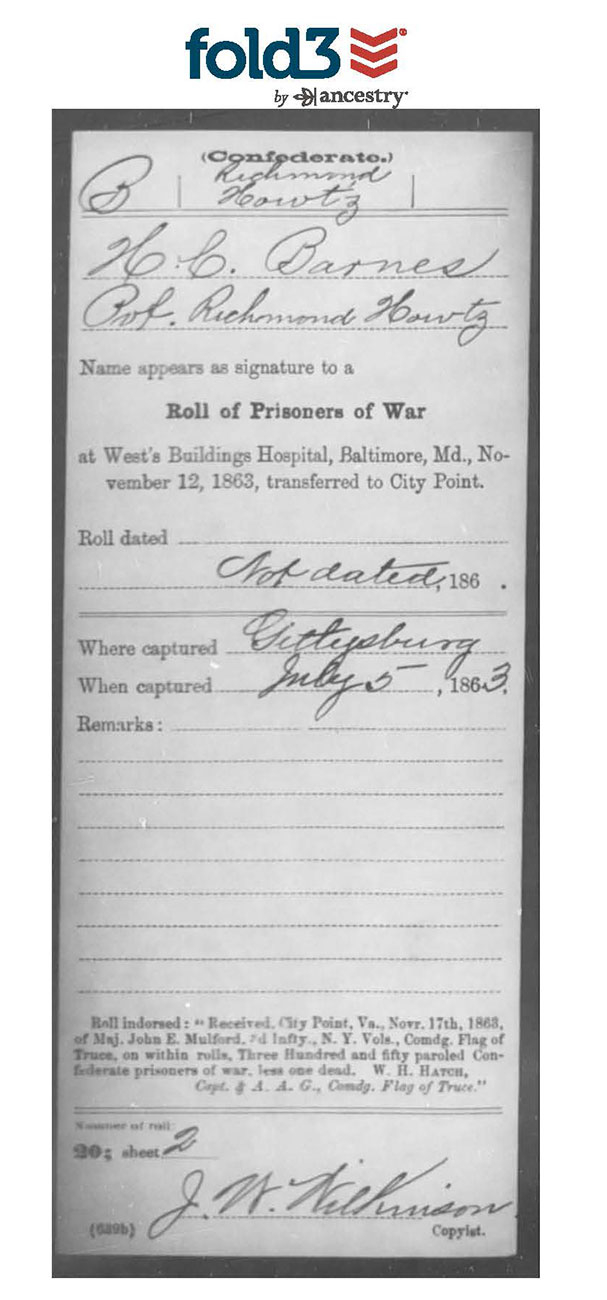 fold3
by ancestry
(Confederate.)
B | Richmond |
Howtz
H. C. Barnes
Pvt. Richmond Howtz
Name appears as signature to a
Roll of Prisoners of War
at West's Buildings Hospital, Baltimore, Md., No-
vember 12, 1863, transferred to City Point.
Roll dated
Not dated, 186 .
Where captured Gettysburg
When captured July 5, 1863.
Remarks:
Roll indorsed: "Received, City Point, Va., Novr. 17th, 1863,
of Maj. John E. Mulford, 3d Infty., N. Y. Vols., Comdg. Flag of
Truce, on within rolls, Three Hundred and fifty paroled Con-
federate prisoners of war, less one dead. W. H. HATCH,
Capt. & A. A. G., Comdg. Flag of Truce."
Number of roll:
20; sheet 2
J. W. Wilkinson
(639b) Copyist.